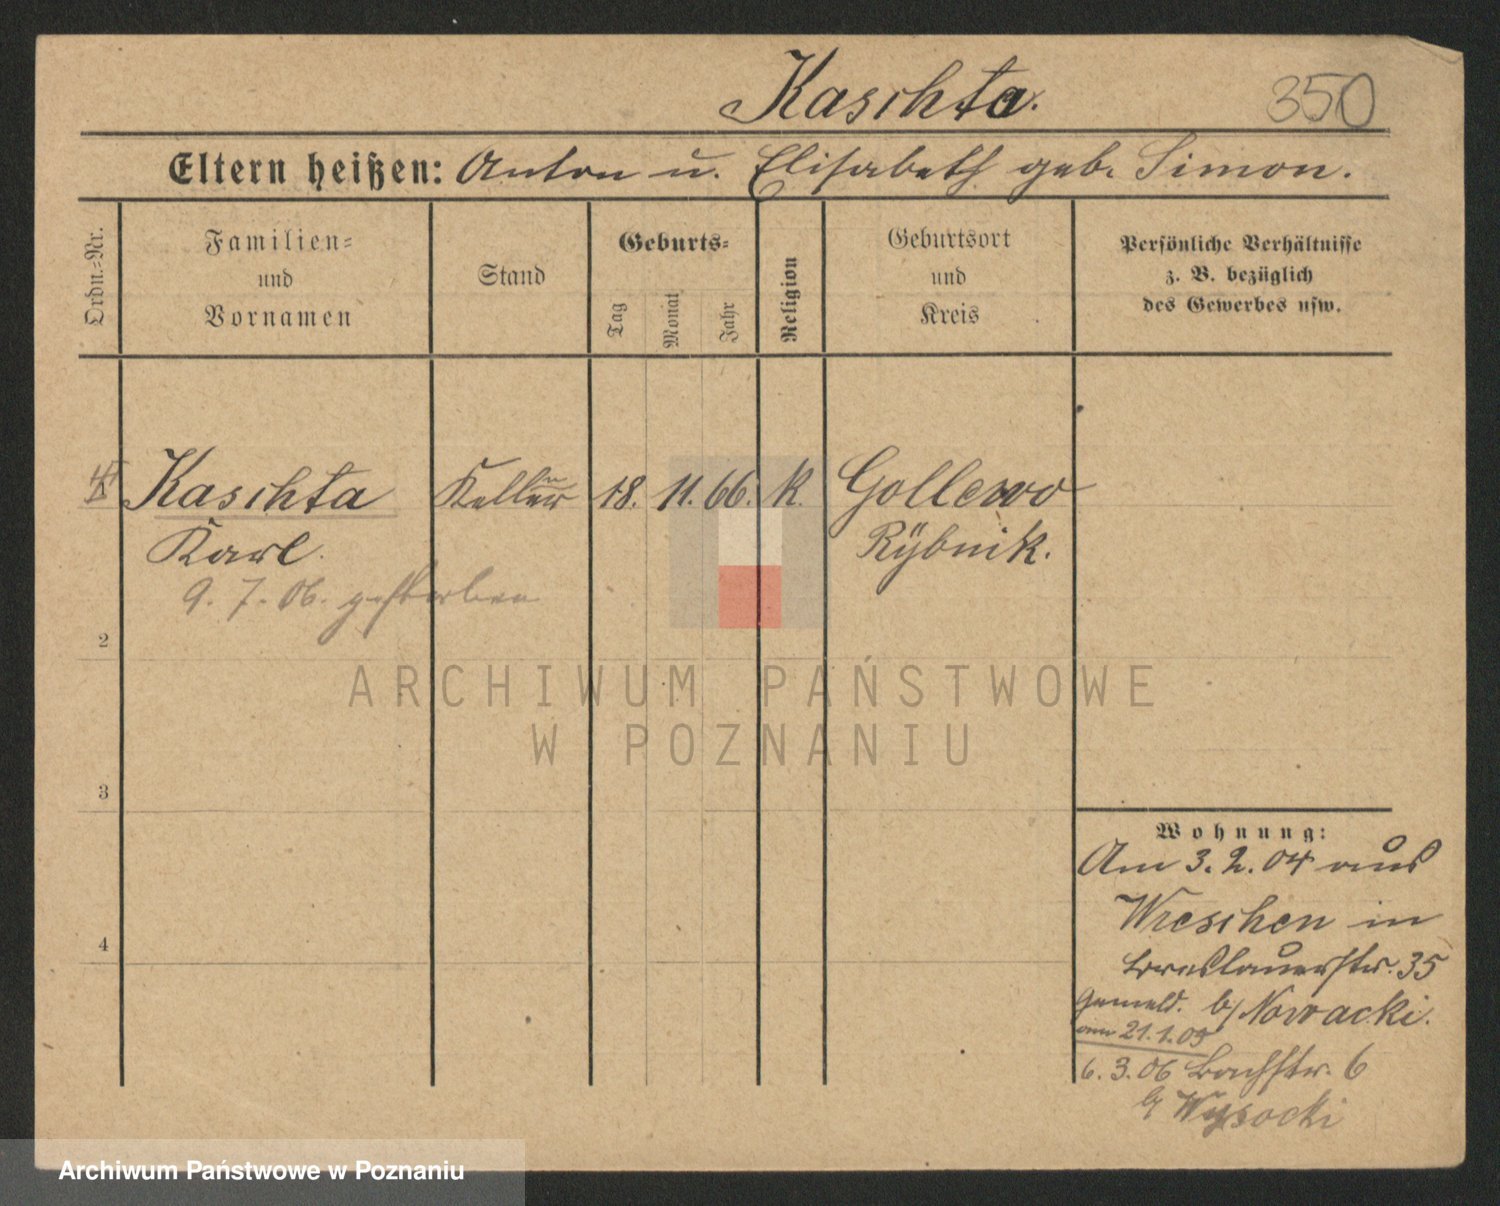 Kaschta. 350
Eltern heißen: Anton u. Elisabeth geb. Simon.
Ordn.-Nr.
Familien-
und
Vornamen
Stand
Geburts-
Tag
Monat
Jahr
Religion
Geburtsort
und
Kreis
Persönliche Verhältnisse
z. B. bezüglich
des Gewerbes usw.
Kaschta 18. 11. 66. k. Gollewo
Karl. Rÿbnik.
9. 7. 06. gestorben
2
3
4
Wohnung:
Am 3. 2. 04 aus
Wreschen in
Breslauerstr. 35
gemeld. b/ Nowacki.
am 21.1.05
6. 3. 06 Bachstr. 6
b/ Wysocki
ARCHIWUM PAŃSTWOWE
W POZNANIU
Archiwum Państwowe w Poznaniu